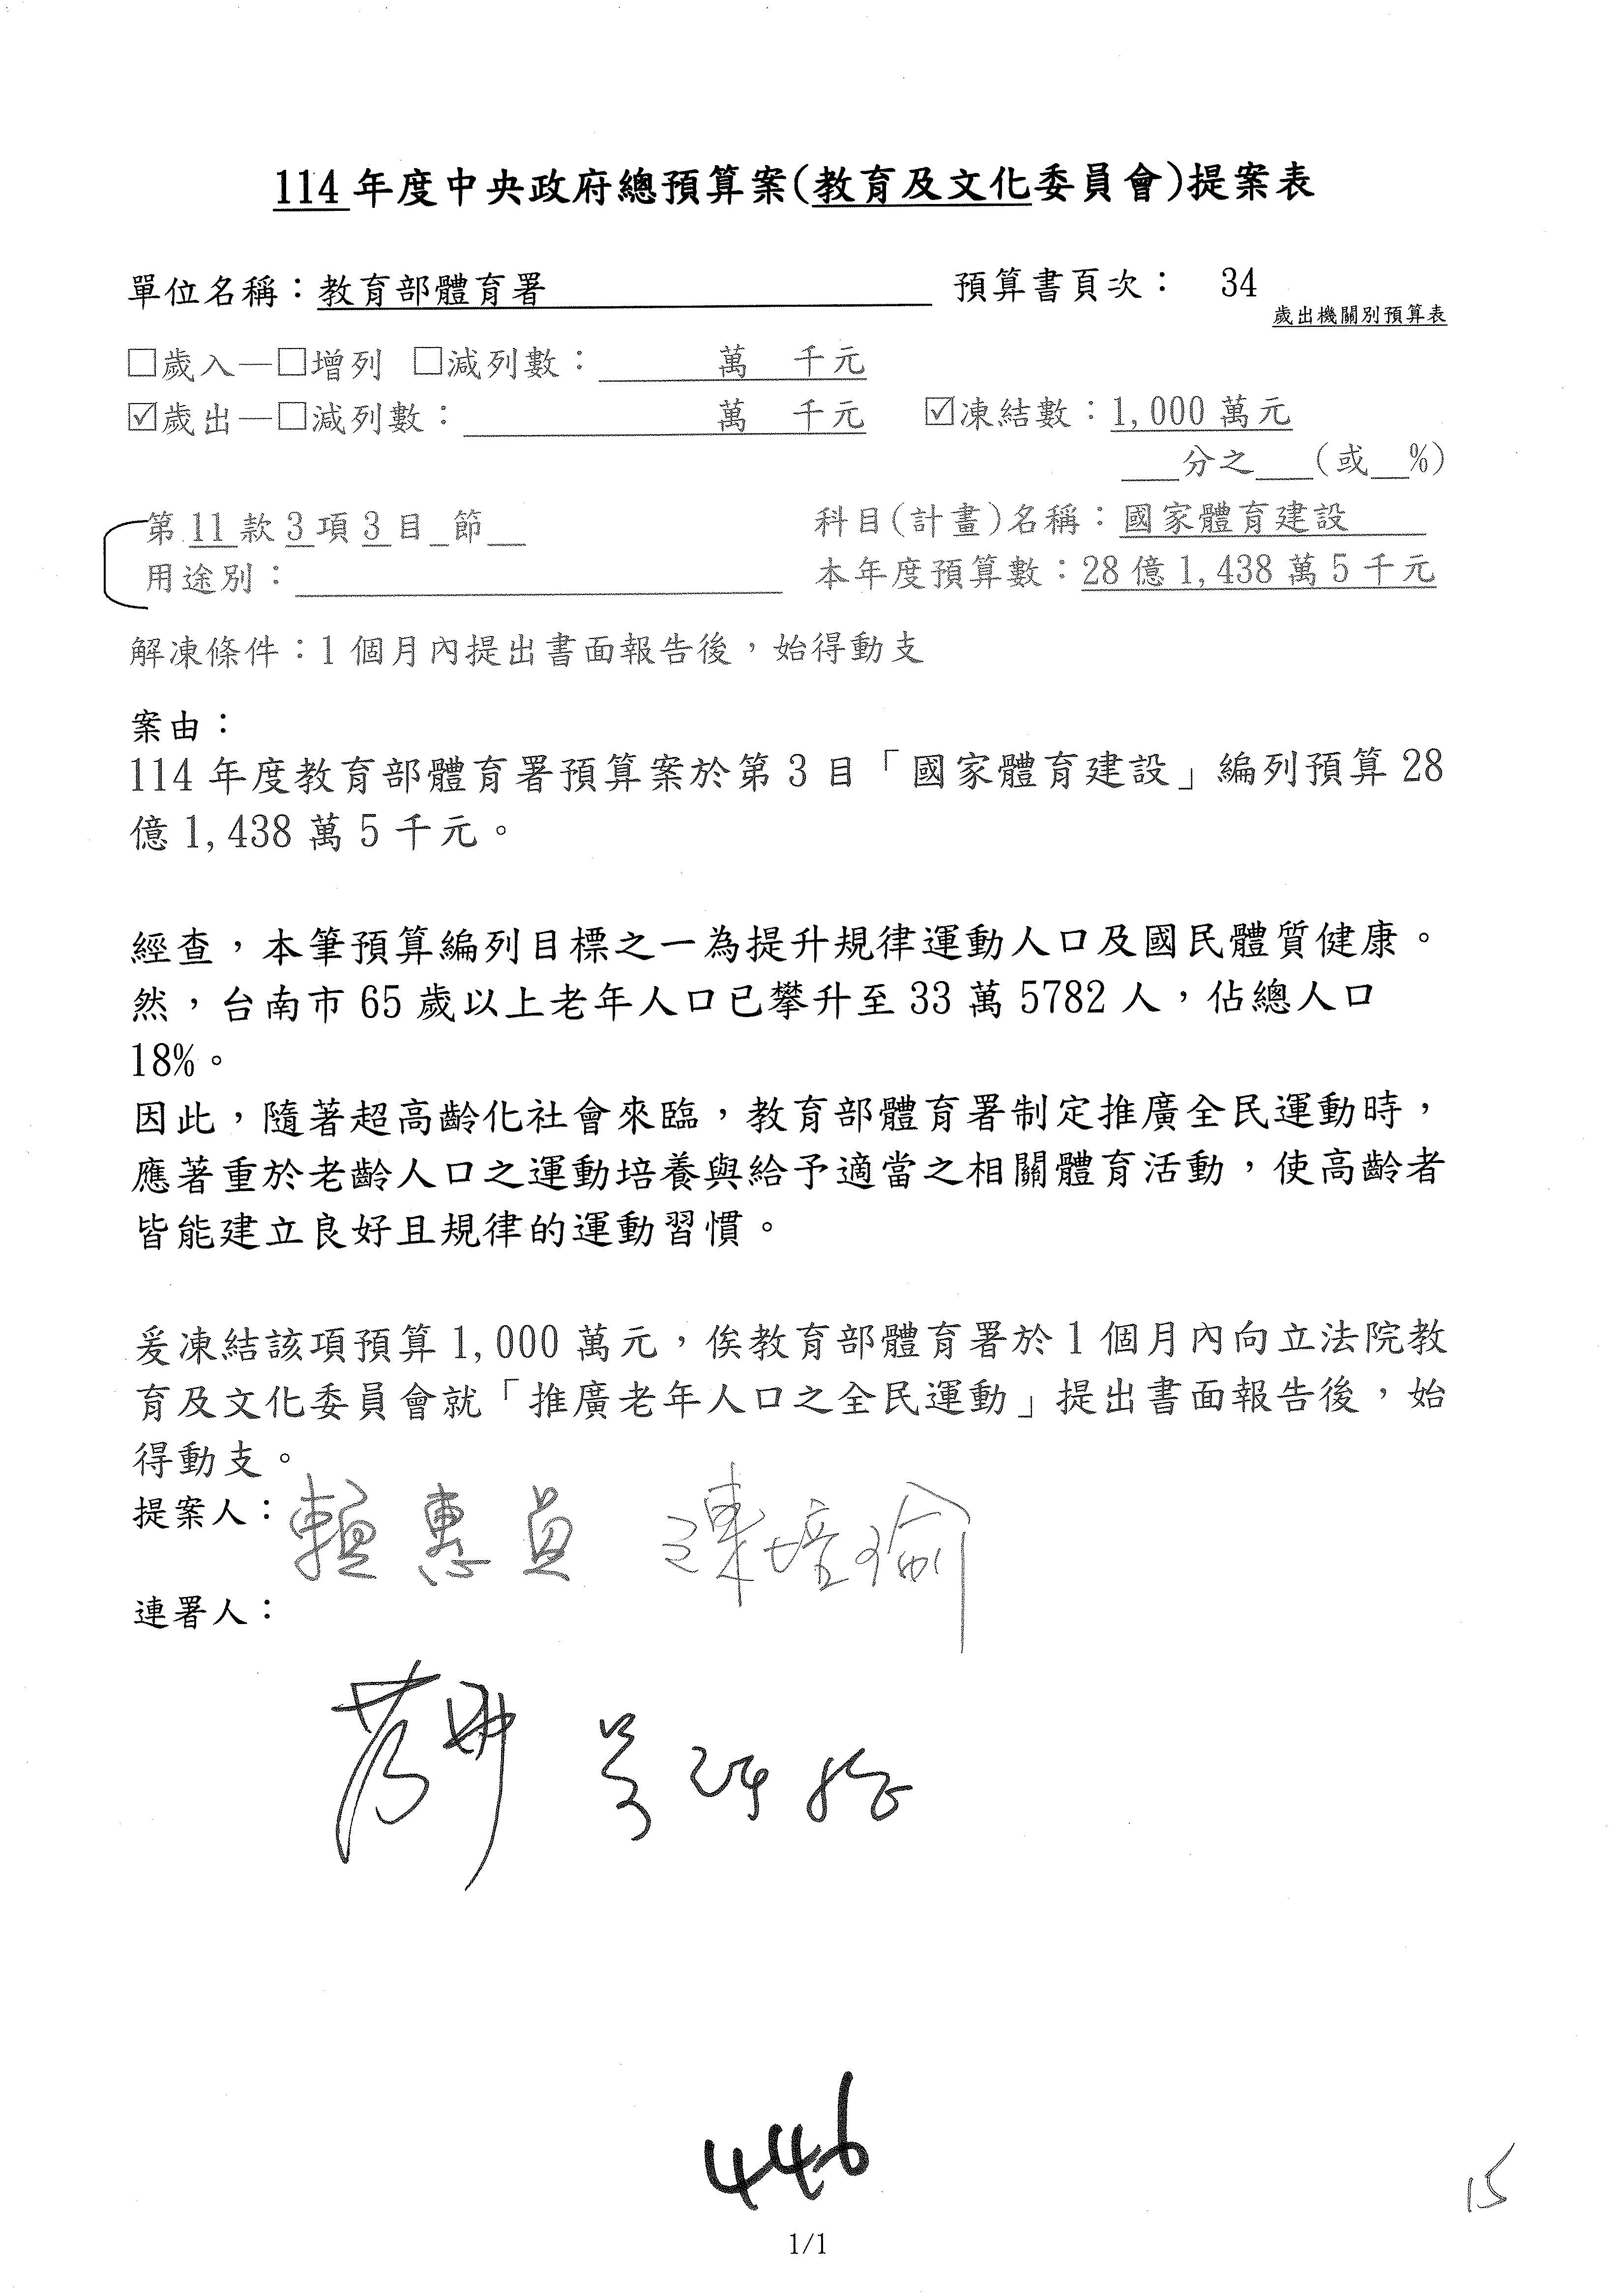 114年度中央政府總預算案(教育及文化委員會)提案表
單位名稱：教育部體育署 預算書頁次： 34
歲出機關別預算表
□歲入—□增列 □減列數： 萬 千元
☑歲出—□減列數： 萬 千元 ☑凍結數：1,000萬元
___分之___(或__%)
第11款3項3目_節__ 科目(計畫)名稱：國家體育建設
用途別： 本年度預算數：28億1,438萬5千元
解凍條件：1個月內提出書面報告後，始得動支
案由：
114年度教育部體育署預算案於第3目「國家體育建設」編列預算28
億1,438萬5千元。
經查，本筆預算編列目標之一為提升規律運動人口及國民體質健康。
然，台南市65歲以上老年人口已攀升至33萬5782人，佔總人口
18%。
因此，隨著超高齡化社會來臨，教育部體育署制定推廣全民運動時，
應著重於老齡人口之運動培養與給予適當之相關體育活動，使高齡者
皆能建立良好且規律的運動習慣。
爰凍結該項預算1,000萬元，俟教育部體育署於1個月內向立法院教
育及文化委員會就「推廣老年人口之全民運動」提出書面報告後，始
得動支。
提案人：賴惠員 陳培瑜
連署人：
446
15
1/1